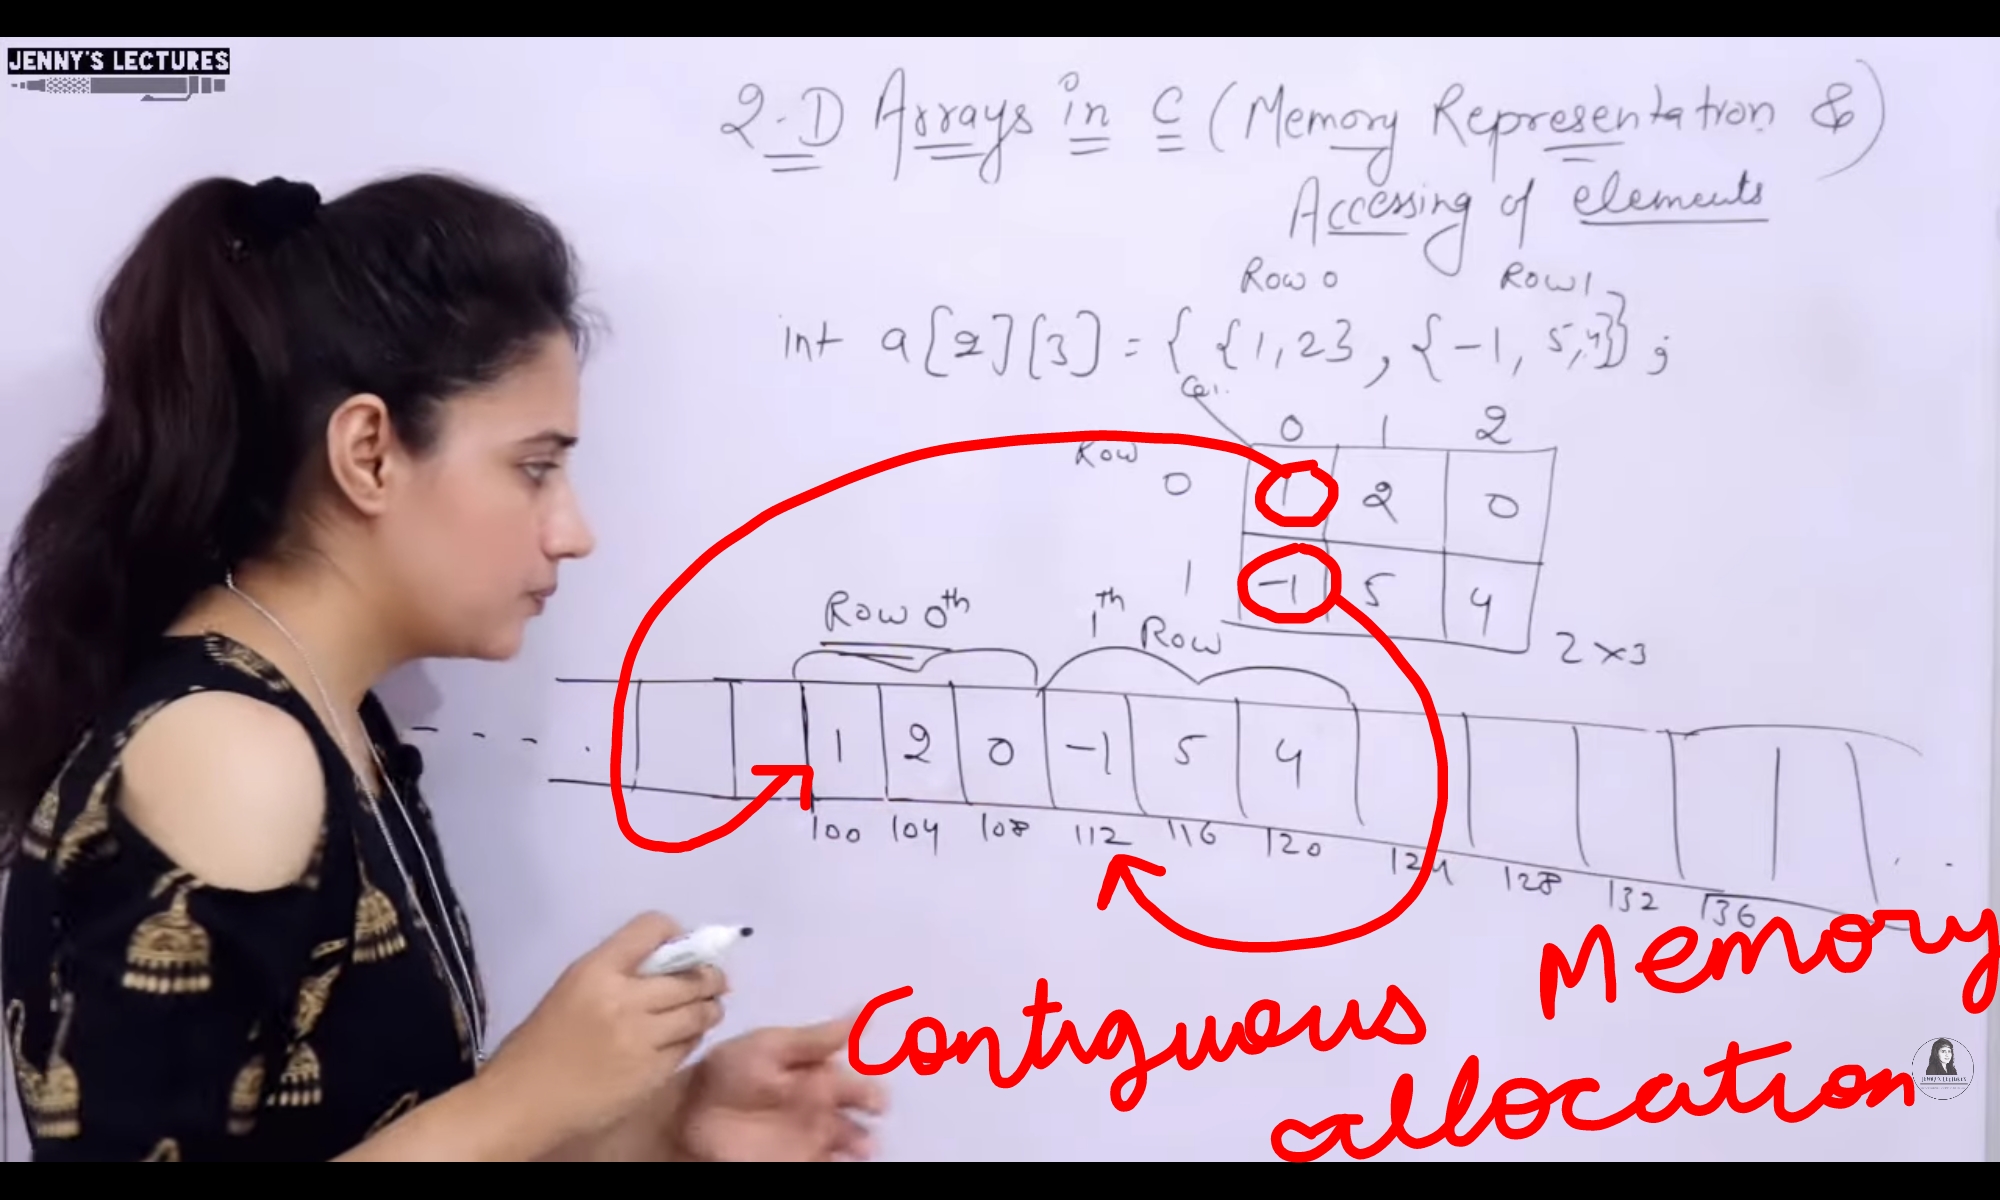 JENNY'S LECTURES
2-D Arrays in C (Memory Representation &)
Accessing of elements
Row 0 Row 1
int a[2][3] = { {1,2} , {-1, 5,4}} ;
Col.
0 1 2
Row
0 1 2 0
1 -1 5 4
2 x 3
Row 0th 1th Row
1 2 0 -1 5 4
100 104 108 112 116 120 124 128 132 136
Contiguous Memory
allocation